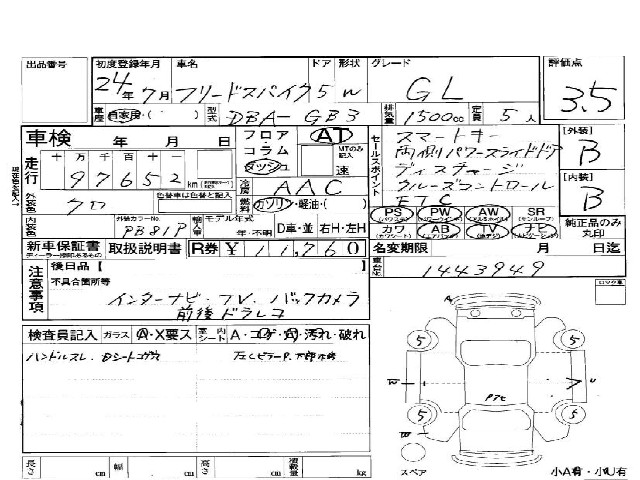 出品番号 初度登録年月 車名 ドア 形状 グレード 評価点
24年7月 フリードスパイク 5 W GL 3.5
車歴 自家用・( ) 型式 DBA-GB3 排気量 1500cc 定員 5人
車検 年 月 日 フロア AT セールスポイント スマートキー 【外装】
コラム MTのみ記入 両側パワースライドドア B
走行 十万千百十一 ダッシュ 速 ディスチャージ
97652 km 冷房 AAC クルーズコントロール 【内装】
外装色 クロ 色替車は色替前を記入 燃料 ガソリン・軽油・( ) ETC B
PS PW AW SR
内装色 外装カラーNo. PB81P 輸入車 モデル年式 年・不明 D車・並 右H・左H カワ AB TV ナビ 純正品のみ丸印
新車保証書 取扱説明書 R券 ¥11,760 名変期限 月 日迄
ディーラー捺印あるもの
注意事項 後日品【 】 車台No. 1443949
不具合箇所等
インターナビ・TV・バックカメラ
前後ドラレコ
検査員記入 ガラス A・X要ス 室内 シート A・コゲ・穴・汚れ・破れ
ハンドルスレ
A
5 5
W 7 U
アアヒ
5 5
W
スペア 小A有・小U有
長さ cm 幅 cm 高さ cm 積載量 kg